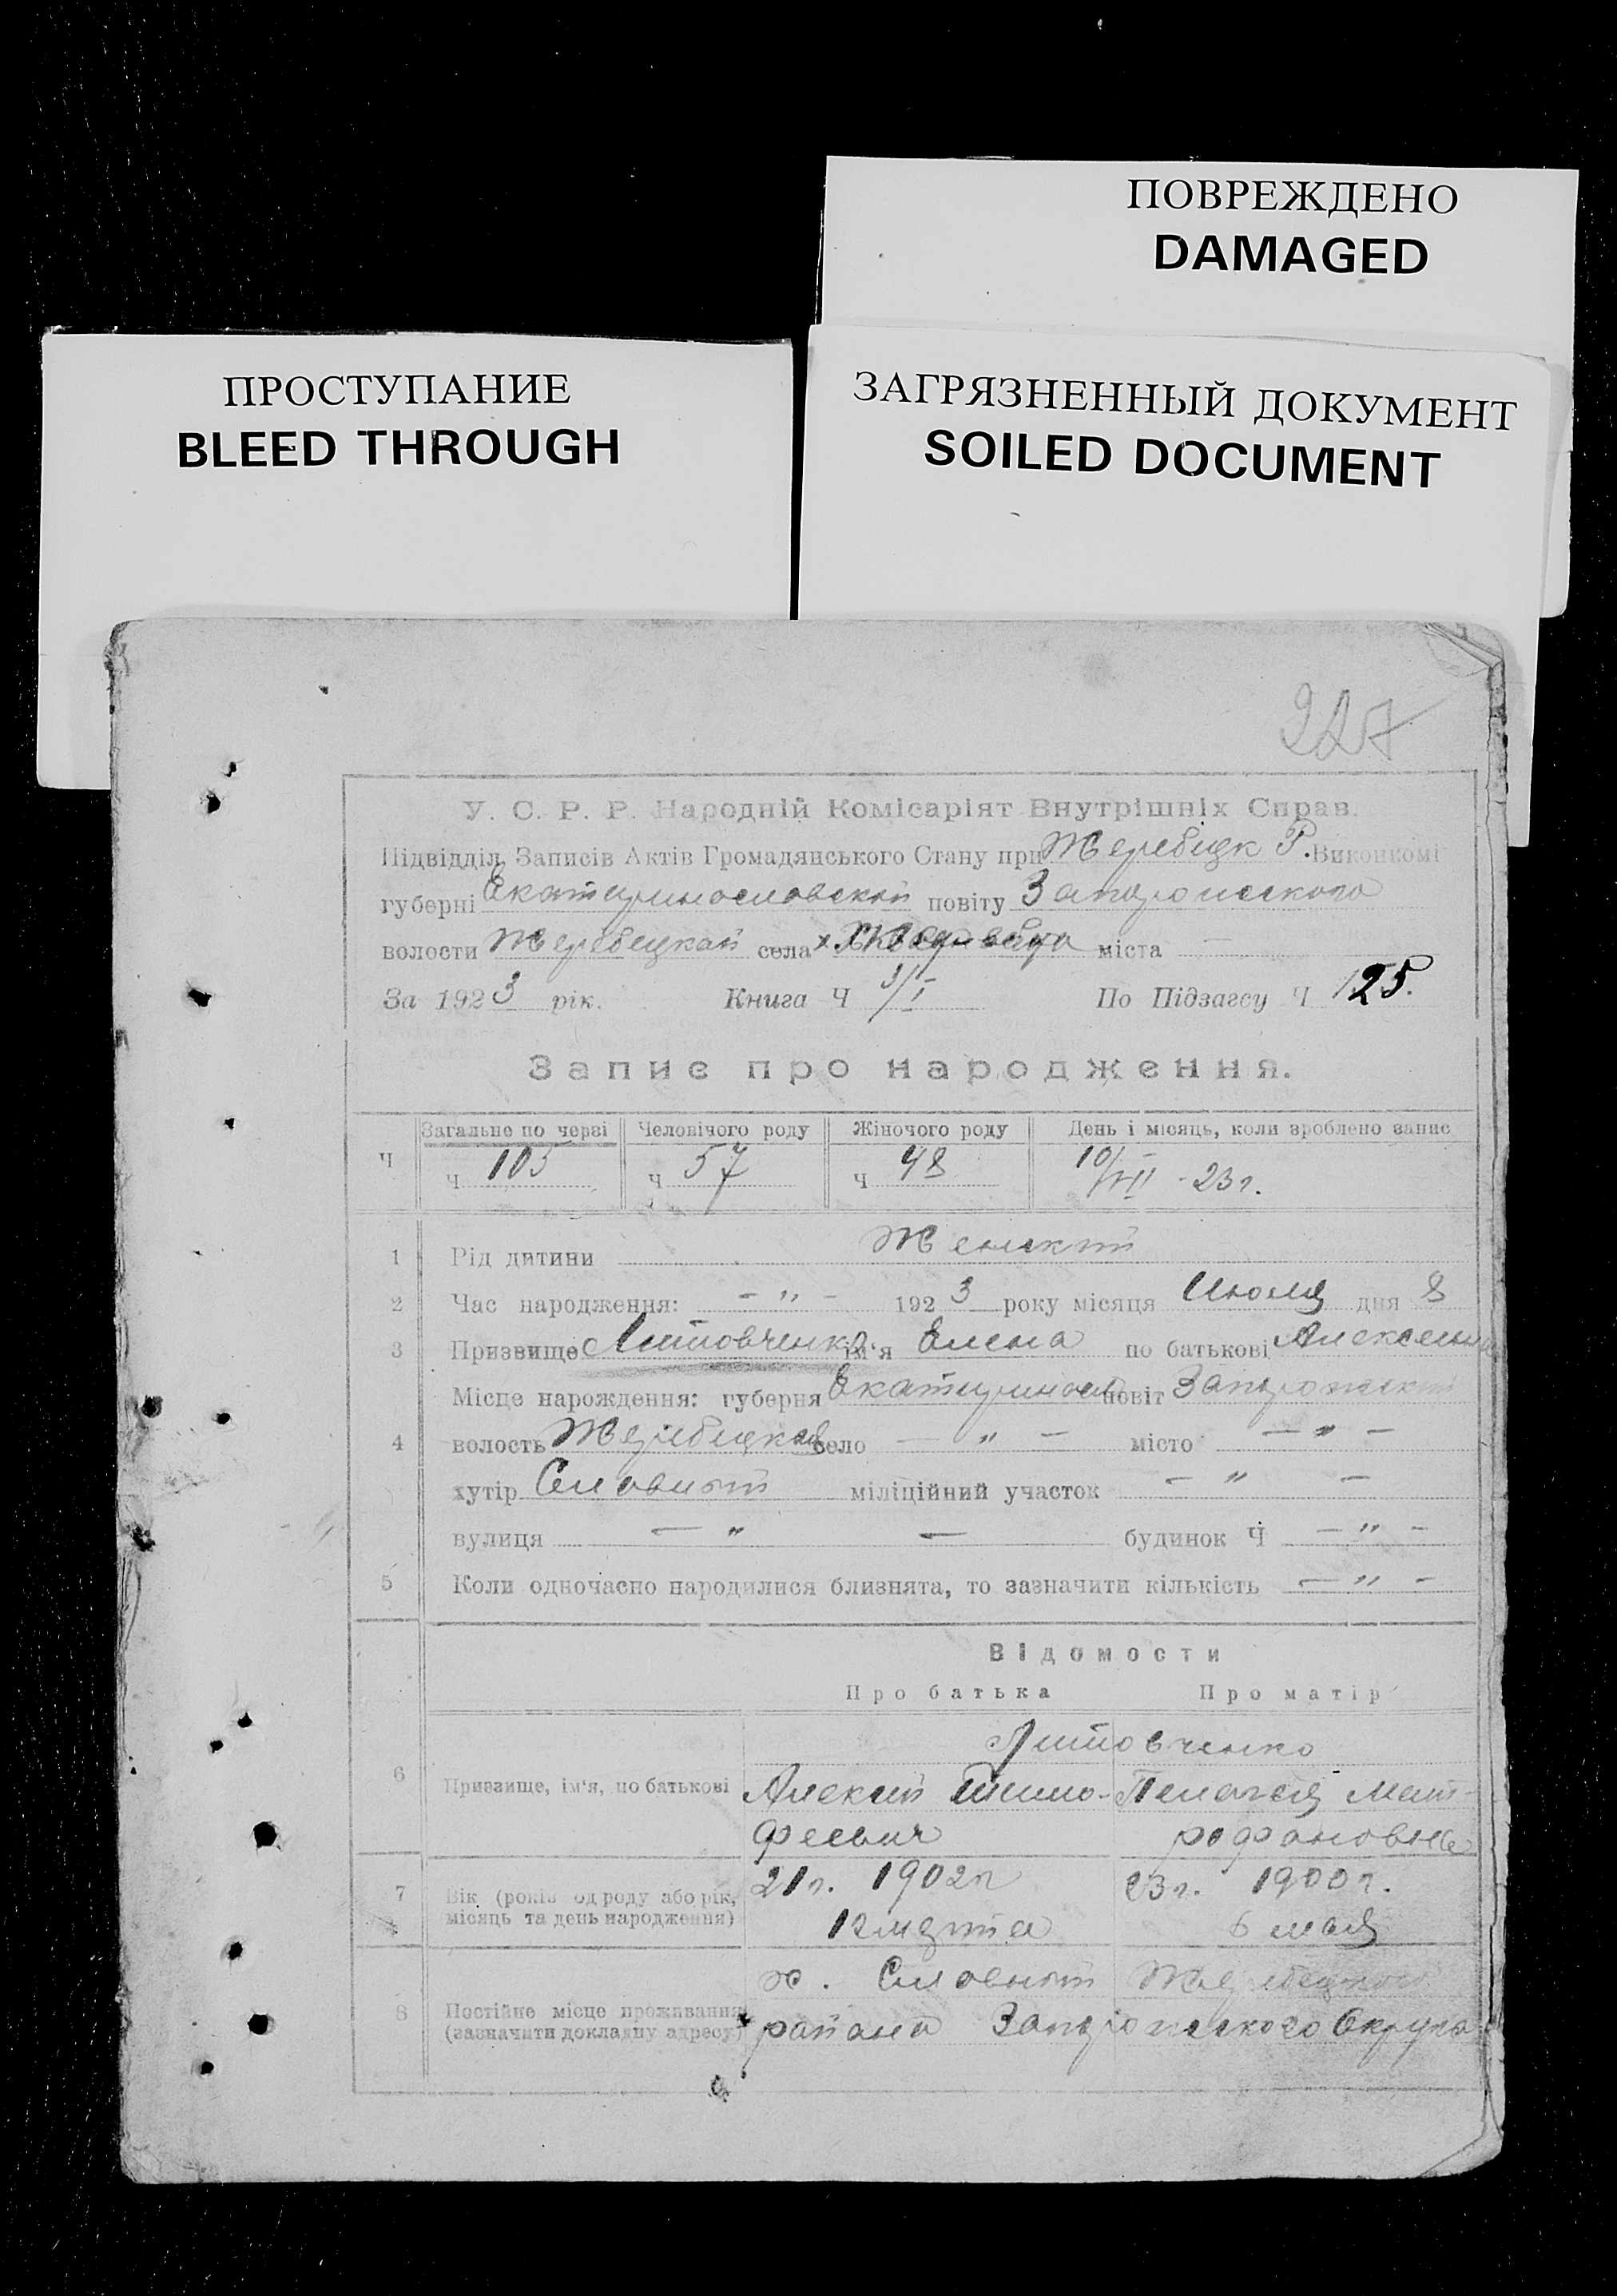 ПОВРЕЖДЕНО
DAMAGED
ПРОСТУПАНИЕ
BLEED THROUGH
ЗАГРЯЗНЕННЫЙ ДОКУМЕНТ
SOILED DOCUMENT
227
У. С. Р. Р. Народній Комісаріят Внутрішніх Справ.
Підвідділ Записів Актів Громадянського Стану при Жеребецк Р. Виконкомі
губерні Екатеринославской повіту Запорожского
волости Жеребецкой села міста —
За 1923 рік. Книга Ч 1/I По Підзагсу Ч 125.
Запис про народження.
Загальне по черзі Человічого роду Жіночого роду День і місяць, коли зроблено запис
Ч Ч 105 Ч 57 Ч 48 10/VII - 23 г.
1 Рід дитини Женский
2 Час народження: - " - 1923 року місяця Июля дня 8
3 Призвище Литовченко ім'я Елена по батькові Алексеевна
Місце нарождення: губерня Екатериносл повіт Запорожский
4 волость Жеребецкая село — " — місто — " —
хутір Словный міліційний участок — " —
вулиця — " — будинок Ч — " —
5 Коли одночасно народилися близнята, то зазначити кількість — " —
Відомости
Про батька Про матір
Литовченко
6 Призвище, ім'я, по батькові Алексей Тимо- Пелагея Мит-
феевич рофановна
7 Вік (років од роду або рік, 21 г. 1902 г 23 г. 1900 г.
місяць та день народження) 12 марта 6 мая
х. Словный Жеребецкого
8 Постійне місце проживання
(зазначити докладну адресу) района Запорожского Округа